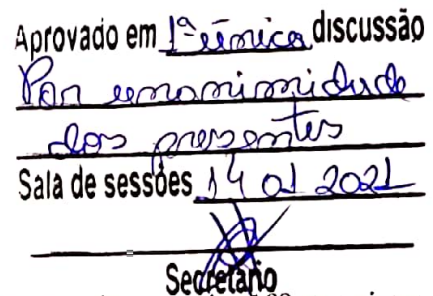 Aprovado em 1ª única discussão
Por unanimidade
dos presentes
Sala de sessões 14 01 2021
Secretário